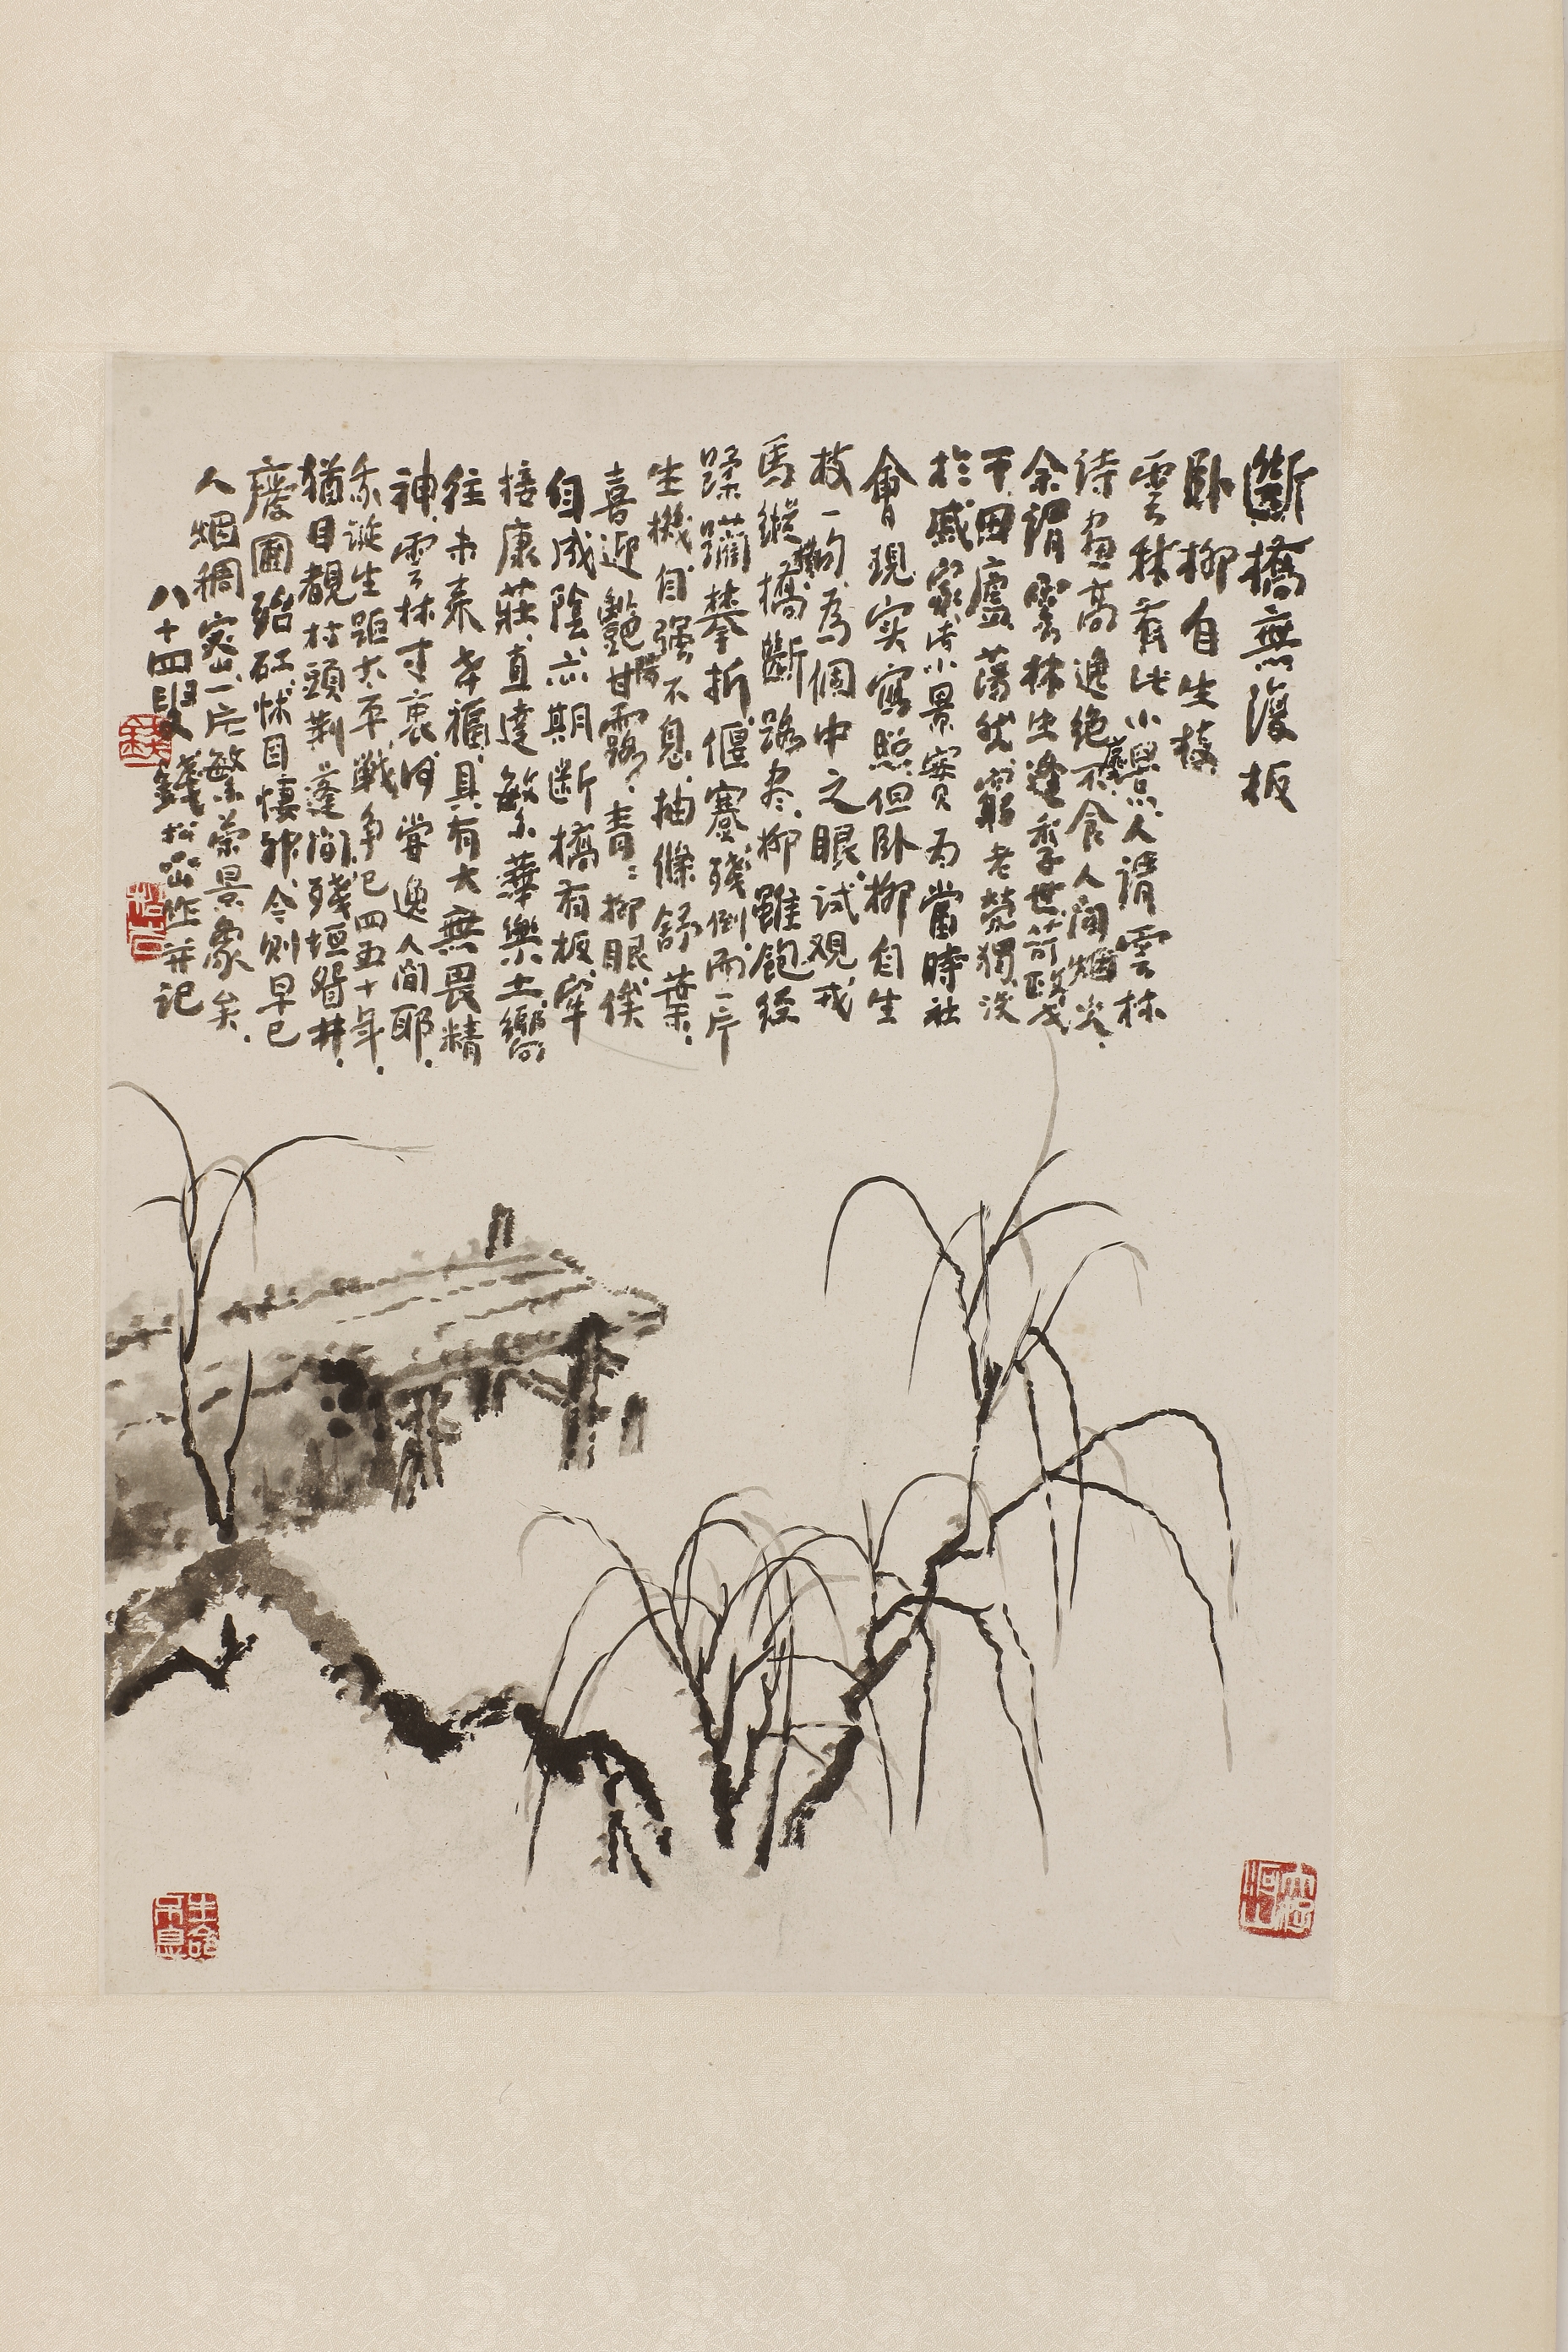 斷橋無復板
卧柳自生枝
雲林有此小景人謂雲林
詩畫高逸絕塵不食人間烟火
余謂雲林生逢季世苛政戈
干田廬蕩然窮老煢獨淡
於感家少小景實為當時社
會現实寫照但卧柳自生
枝一句為個中之眼試观戎
馬縱橫橋斷路尽柳雖飽经
蹂躪攀折偃蹇殘倒而一片
生機自强不息抽條舒葉
喜迎艷陽甘露青青柳眼俟
自成陰亦期断橋有板牢
接康莊直達繁華樂土嚮
往未来幸福具有大無畏精
神雲林寸衷何嘗逸人間耶
余誕生距太平戰争已四五十年
猶目覩村頭荆蓬間殘垣眢井
廢圃頹砭怵目悽神今則早已
人烟稠密一片繁荣景象矣
八十四叟錢松喦作并記
大好河山
生命不息